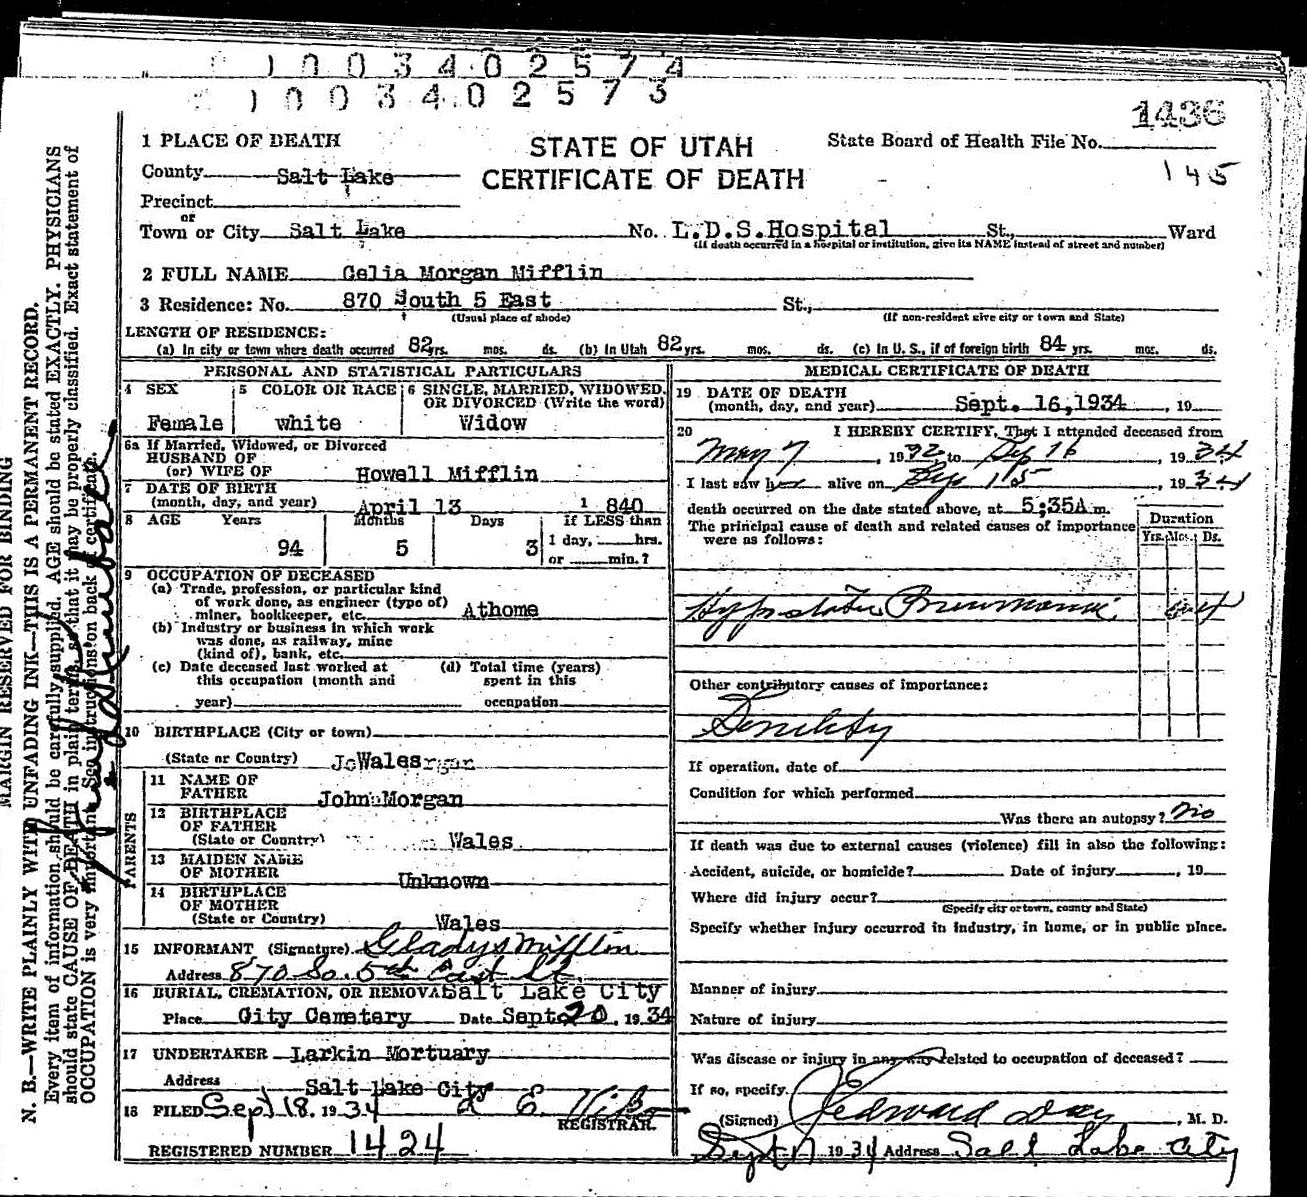 1003402574
1003402573
1436
1 PLACE OF DEATH
STATE OF UTAH
State Board of Health File No.
County Salt Lake
CERTIFICATE OF DEATH
145
Precinct
or
Town or City Salt Lake No. L.D.S.Hospital St., Ward
(If death occurred in a hospital or institution, give its NAME instead of street and number)
2 FULL NAME Celia Morgan Mifflin
3 Residence: No. 870 South 5 East St.,
(Usual place of abode) (If non-resident give city or town and State)
LENGTH OF RESIDENCE:
(a) In city or town where death occurred 82 yrs. mos. ds. (b) In Utah 82 yrs. mos. ds. (c) In U. S., if of foreign birth 84 yrs. mos. ds.
PERSONAL AND STATISTICAL PARTICULARS
4 SEX 5 COLOR OR RACE 6 SINGLE, MARRIED, WIDOWED, OR DIVORCED (Write the word)
Female white Widow
6a If Married, Widowed, or Divorced
HUSBAND OF
(or) WIFE OF Howell Mifflin
7 DATE OF BIRTH
(month, day, and year) April 13 1 840
8 AGE Years Months Days If LESS than
94 5 3 1 day, hrs.
or min.?
9 OCCUPATION OF DECEASED
(a) Trade, profession, or particular kind
of work done, as engineer (type of)
miner, bookkeeper, etc. Athome
(b) Industry or business in which work
was done, as railway, mine
(kind of), bank, etc.
(c) Date deceased last worked at (d) Total time (years)
this occupation (month and spent in this
year) occupation
10 BIRTHPLACE (City or town)
(State or Country) Wales
PARENTS
11 NAME OF
FATHER John Morgan
12 BIRTHPLACE
OF FATHER
(State or Country) Wales
13 MAIDEN NAME
OF MOTHER Unknown
14 BIRTHPLACE
OF MOTHER
(State or Country) Wales
15 INFORMANT (Signature) Gladys Mifflin
Address 870 So. 5th East St.
16 BURIAL, CREMATION, OR REMOVAL Salt Lake City
Place City Cemetery Date Sept 20, 1934
17 UNDERTAKER Larkin Mortuary
Address Salt Lake City
18 FILED Sept 18, 1934
REGISTRAR.
REGISTERED NUMBER 1424
MEDICAL CERTIFICATE OF DEATH
19 DATE OF DEATH
(month, day, and year) Sept. 16,1934, 19
20 I HEREBY CERTIFY, That I attended deceased from
May 7, 1932 to Sep 16, 1934
I last saw her alive on Sep 15, 1934
death occurred on the date stated above, at 5;35A m.
The principal cause of death and related causes of importance
were as follows:
Duration
Yrs. Mos. Ds.
Hypostatic Pneumonia
Other contributory causes of importance:
Senility
If operation, date of
Condition for which performed
Was there an autopsy? No
If death was due to external causes (violence) fill in also the following:
Accident, suicide, or homicide? Date of injury, 19
Where did injury occur?
(Specify city or town, county and State)
Specify whether injury occurred in industry, in home, or in public place.
Manner of injury
Nature of injury
Was disease or injury in any way related to occupation of deceased?
If so, specify
(Signed) J Edward Day, M. D.
Sept 17 1934 Address Salt Lake City
MARGIN RESERVED FOR BINDING
N. B.—WRITE PLAINLY WITH UNFADING INK—THIS IS A PERMANENT RECORD.
Every item of information should be carefully supplied. AGE should be stated EXACTLY. PHYSICIANS
should state CAUSE OF DEATH in plain terms, so that it may be properly classified. Exact statement of
OCCUPATION is very important. See instructions on back of certificate.